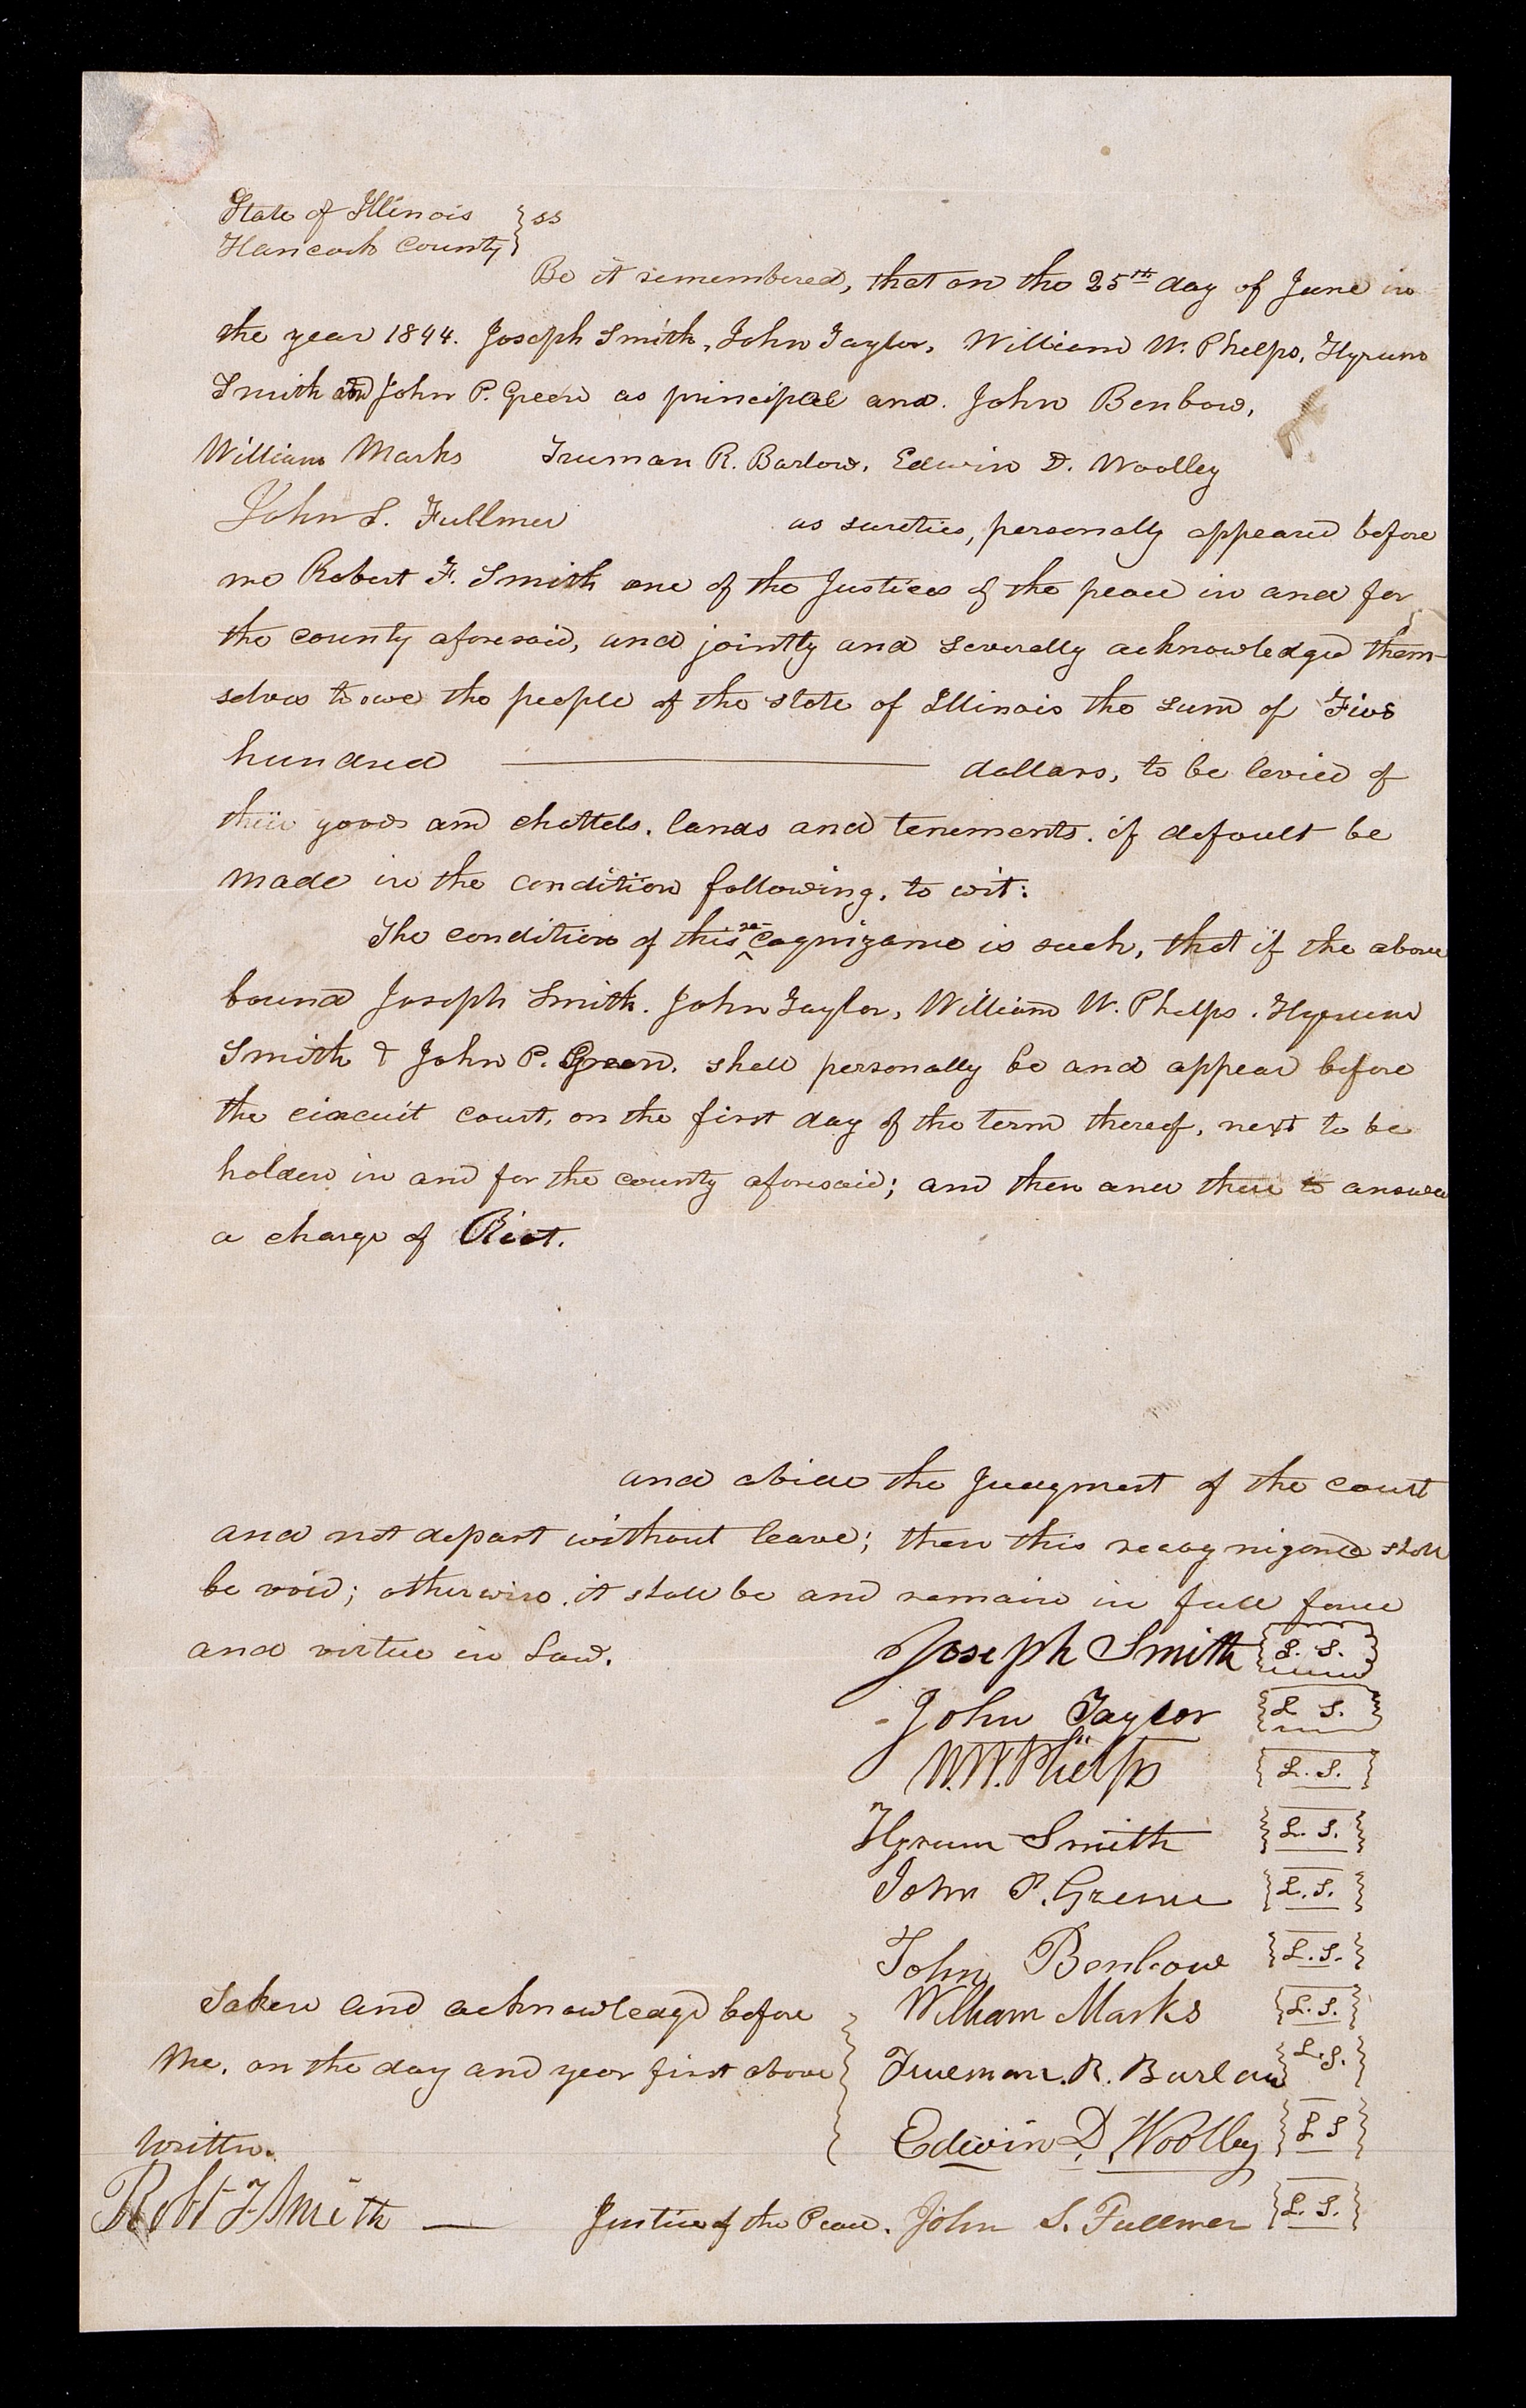 State of Illinois } ss
Hancock County }
Be it remembered, that on the 25th day of June in
the year 1844. Joseph Smith, John Taylor, William W. Phelps, Hyrum
Smith and John P. Green as principal and. John Benbow,
William Marks Truman R. Barlow, Edwin D. Woolley
John S. Fullmer as sureties, personally appeared before
me Robert F. Smith one of the Justices of the peace in and for
the county aforesaid, and jointly and severally acknowledged them-
selves to owe the people of the state of Illinois the sum of Five
hundred ——— dollars, to be levied of
their goods and chattels, lands and tenements, if default be
made in the condition following, to wit:
The condition of this re-cognizance is such, that if the above
bound Joseph Smith. John Taylor, William W. Phelps. Hyrum
Smith & John P. Green, shall personally be and appear before
the circuit court, on the first day of the term thereof, next to be
holden in and for the county aforesaid; and then and there to answer
a charge of Riot.
and abide the Judgment of the court
and not depart without leave; then this recognizance shall
be void; otherwise, it shall be and remain in full force
and virtue in Law.
Joseph Smith {L. S.}
John Taylor {L S.}
W. W. Phelps {L. S.}
Hyrum Smith {L. S.}
John P. Greene {L. S.}
John Benbow {L. S.}
William Marks {L. S.}
Trueman. R. Barlow {L. S.}
Edwin D. Woolley {L S}
John S. Fullmer {L. S.}
Taken and acknowledgd before
me, on the day and year first above
written.
Robt F Smith — Justice of the Peace.